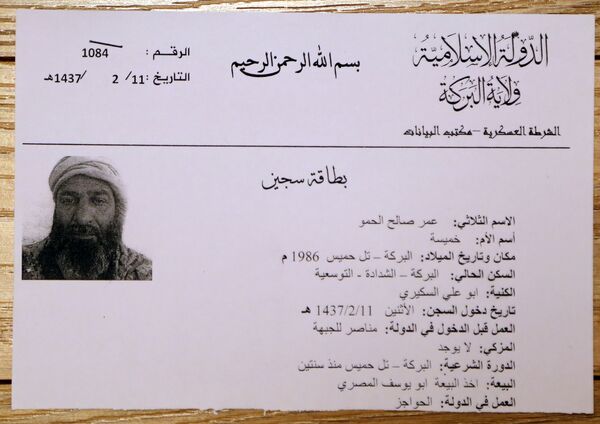 الدولة الإسلامية
ولاية البركة
الشرطة العسكرية – مكتب البيانات
بسم الله الرحمن الرحيم
الرقم : 1084
التاريخ : 11/ 2 /1437هـ
بطاقة سجين
الاسم الثلاثي: عمر صالح الحمو
أسم الأم: خميسة
مكان وتاريخ الميلاد: البركة – تل حميس 1986 م
السكن الحالي: البركة – الشدادة - التوسعية
الكنية: ابو علي السكيري
تاريخ دخول السجن: الأثنين 1437/2/11 هـ
العمل قبل الدخول في الدولة: مناصر للجبهة
المزكي: لا يوجد
الدورة الشرعية: البركة – تل حميس منذ سنتين
البيعة: اخذ البيعة ابو يوسف المصري
العمل في الدولة: الحواجز